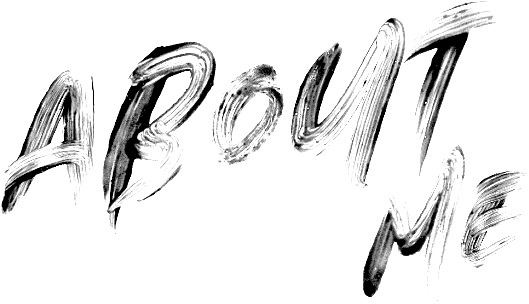 ABOUT
ME